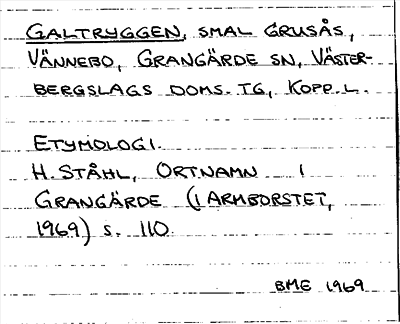 GALTRYGGEN, SMAL GRUSÅS,
VÄNNEBO, GRANGÄRDE SN, VÄSTER-
BERGSLAGS DOMS. TG, KOPP. L.
ETYMOLOGI.
H. STÅHL, ORTNAMN I
GRANGÄRDE (I ARMBORSTET,
1969) S. 110.
BME 1969